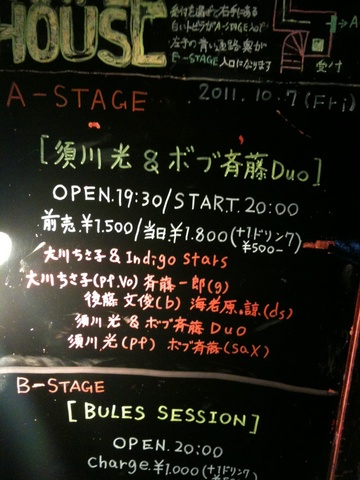 HOUSE
受付を過ぎ、右手にある
白いトビラがA-STAGE入口
左手の青い通路奥が
B-STAGE入口になります
→A
受付
A-STAGE 2011.10.7(Fri)
[須川光&ボブ斉藤Duo]
OPEN.19:30/START.20:00
前売.¥1.500/当日¥1.800(+1ドリンク¥500-)
大川ちさ子&Indigo Stars
大川ちさ子(pf.Vo)斉藤一郎(g)
後藤文俊(b)海老原.諒(ds)
須川光&ボブ斉藤Duo
須川.光(pf)ボブ斉藤(sax)
B-STAGE
[BULES SESSION]
OPEN.20:00
charge.¥1.000(+1ドリンク